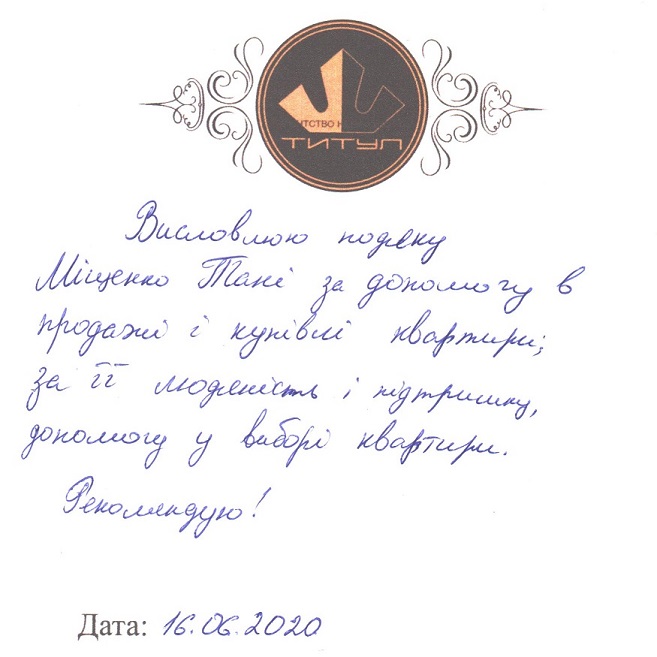 ТСТВО Н
ТИТУЛ
Висловлюю подяку
Міщенко Тані за допомогу в
продажі і купівлі квартири;
за її людяність і підтримку,
допомогу у виборі квартири.
Рекомендую!
Дата: 16.06.2020